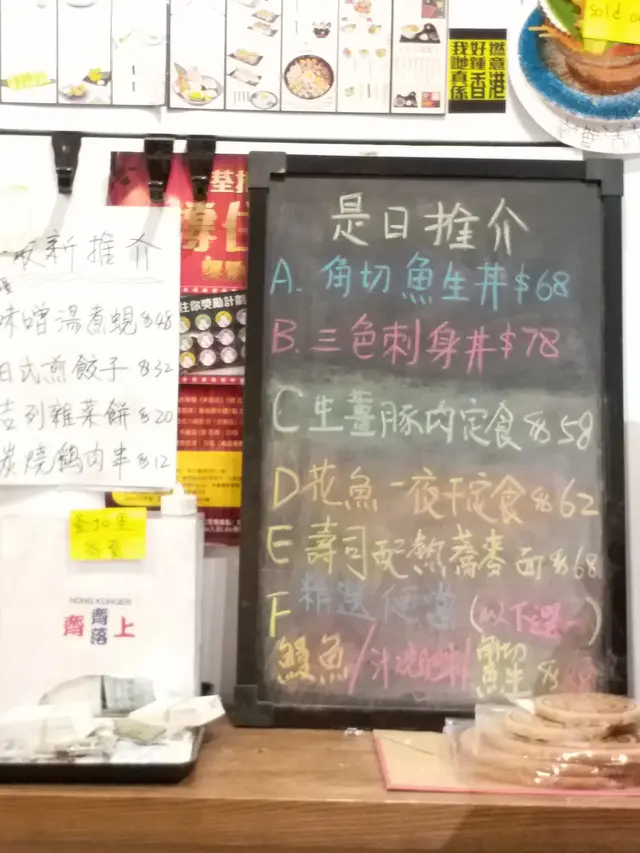 sold
我好鍾撚意
哋 香
真係 港
新推介
味噌湯煮蜆 $48
日式煎餃子 $32
吉列雜菜餅 $20
炭燒鷄肉串 $12
住你獎勵計劃
HONG KONGER
齊齊上
落
是日推介
A. 角切魚生丼 $68
B. 三色刺身丼 $78
C 生薑豚肉定食 $58
D 花魚一夜干定食 $62
E 壽司配熱蕎麥面 $68
F 精選便當 (以下選一)
鰻魚/
角切魚生